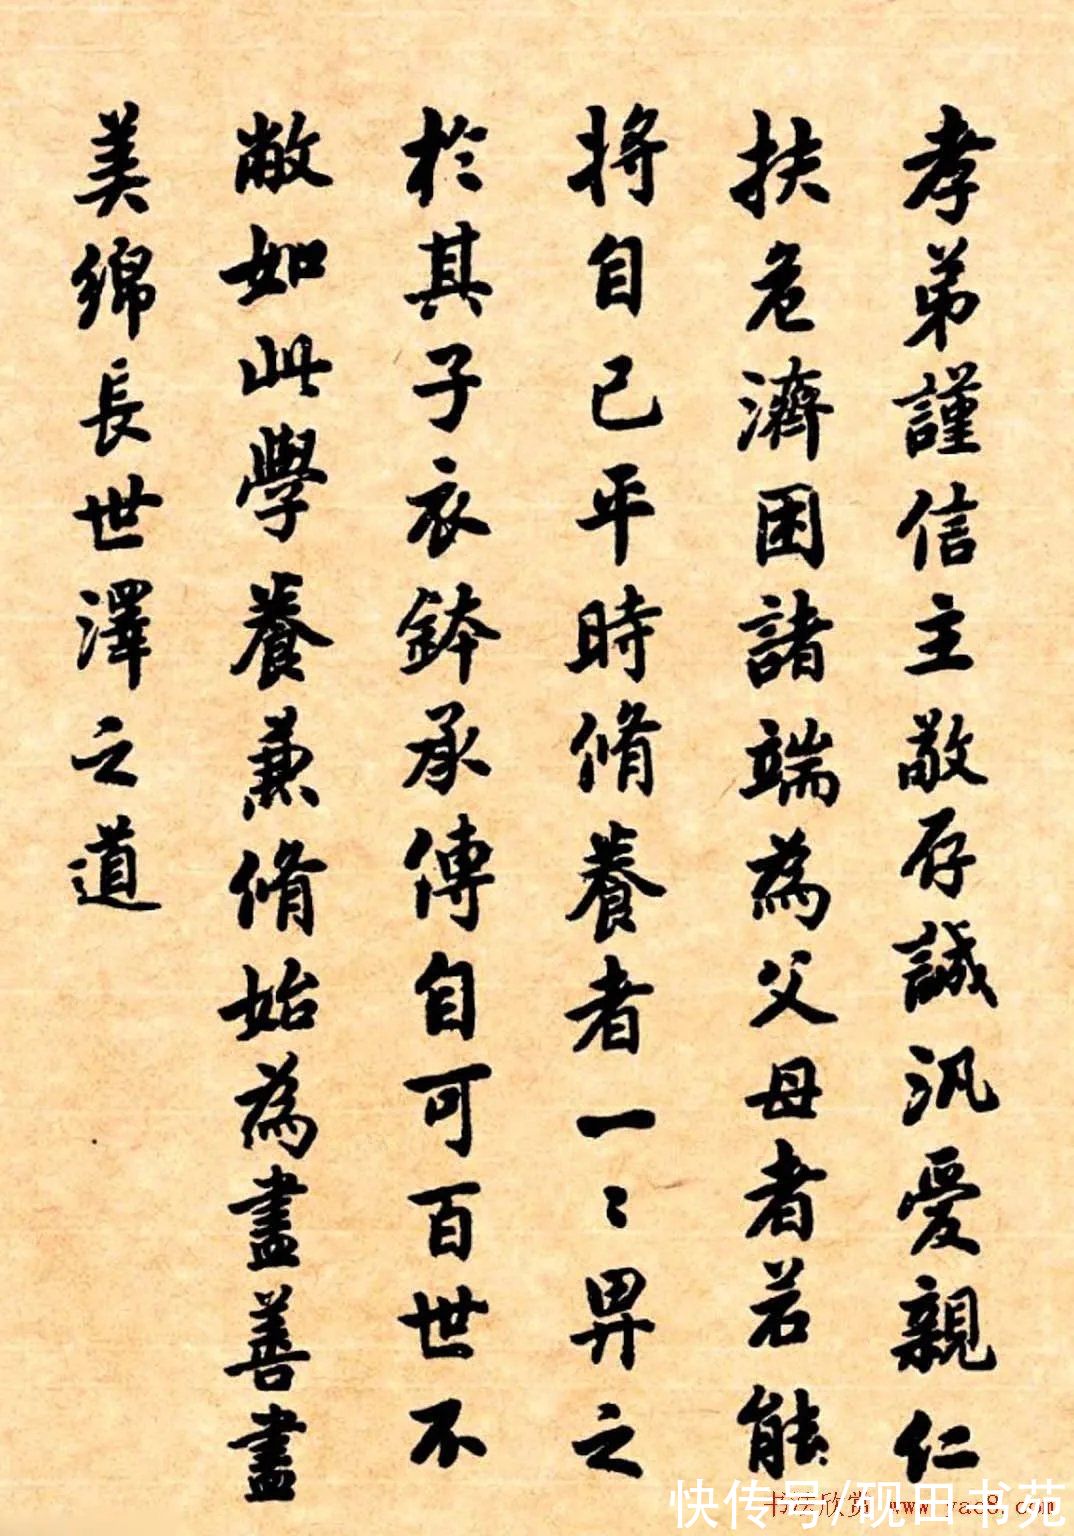 孝弟謹信主敬存誠汎愛親仁
扶危濟困諸端為父母者若能
將自己平時脩養者一々畀之
於其子衣鉢承傳自可百世不
敝如此學養兼脩始為盡善盡
美綿長世澤之道
快传号/砚田书苑
书法欣赏 www.yac8.com